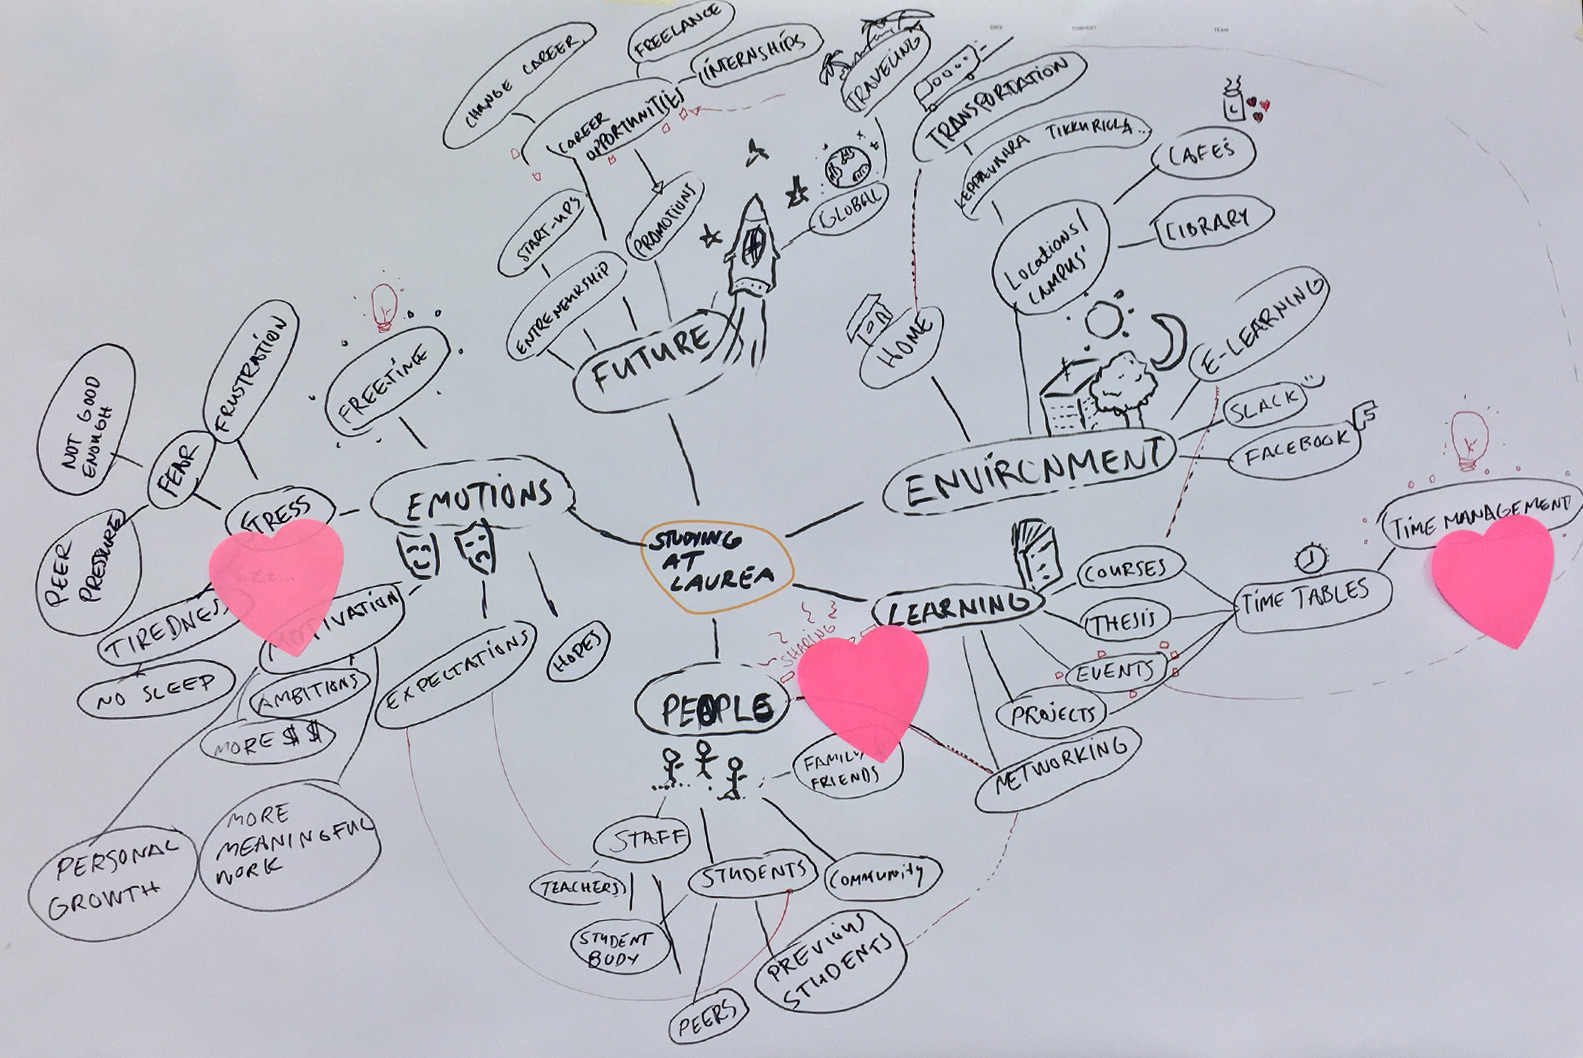 DATE
CONTEXT
TEAM
CHANGE CAREER
FREELANCE
INTERNSHIPS
CAREER
OPPORTUNITIES
START-UPS
PROMOTIONS
ENTRENEURSHIP
FUTURE
TRAVELING
GLOBAL
TRANSPORTATION
LEPPÄVAARA TIKKURILLA...
LOCATIONS/
CAMPUS'
CAFES
LIBRARY
HOME
E-LEARNING
SLACK
FACEBOOK
F
ENVIRONMENT
FREETIME
NOT GOOD
ENOUGH
FRUSTRATION
FEAR
STRESS
PEER
PRESSURE
EMOTIONS
TIREDNESS
ZZ...
NO SLEEP
MOTIVATION
AMBITIONS
MORE $ $
PERSONAL
GROWTH
MORE
MEANINGFUL
WORK
EXPECTATIONS
HOPES
STUDYING
AT
LAUREA
LEARNING
COURSES
THESIS
EVENTS
PROJECTS
NETWORKING
TIME TABLES
TIME MANAGEMENT
SHARING
PEOPLE
FAMILY
FRIENDS
STAFF
TEACHERS
STUDENT
BODY
STUDENTS
COMMUNITY
PEERS
PREVIOUS
STUDENTS